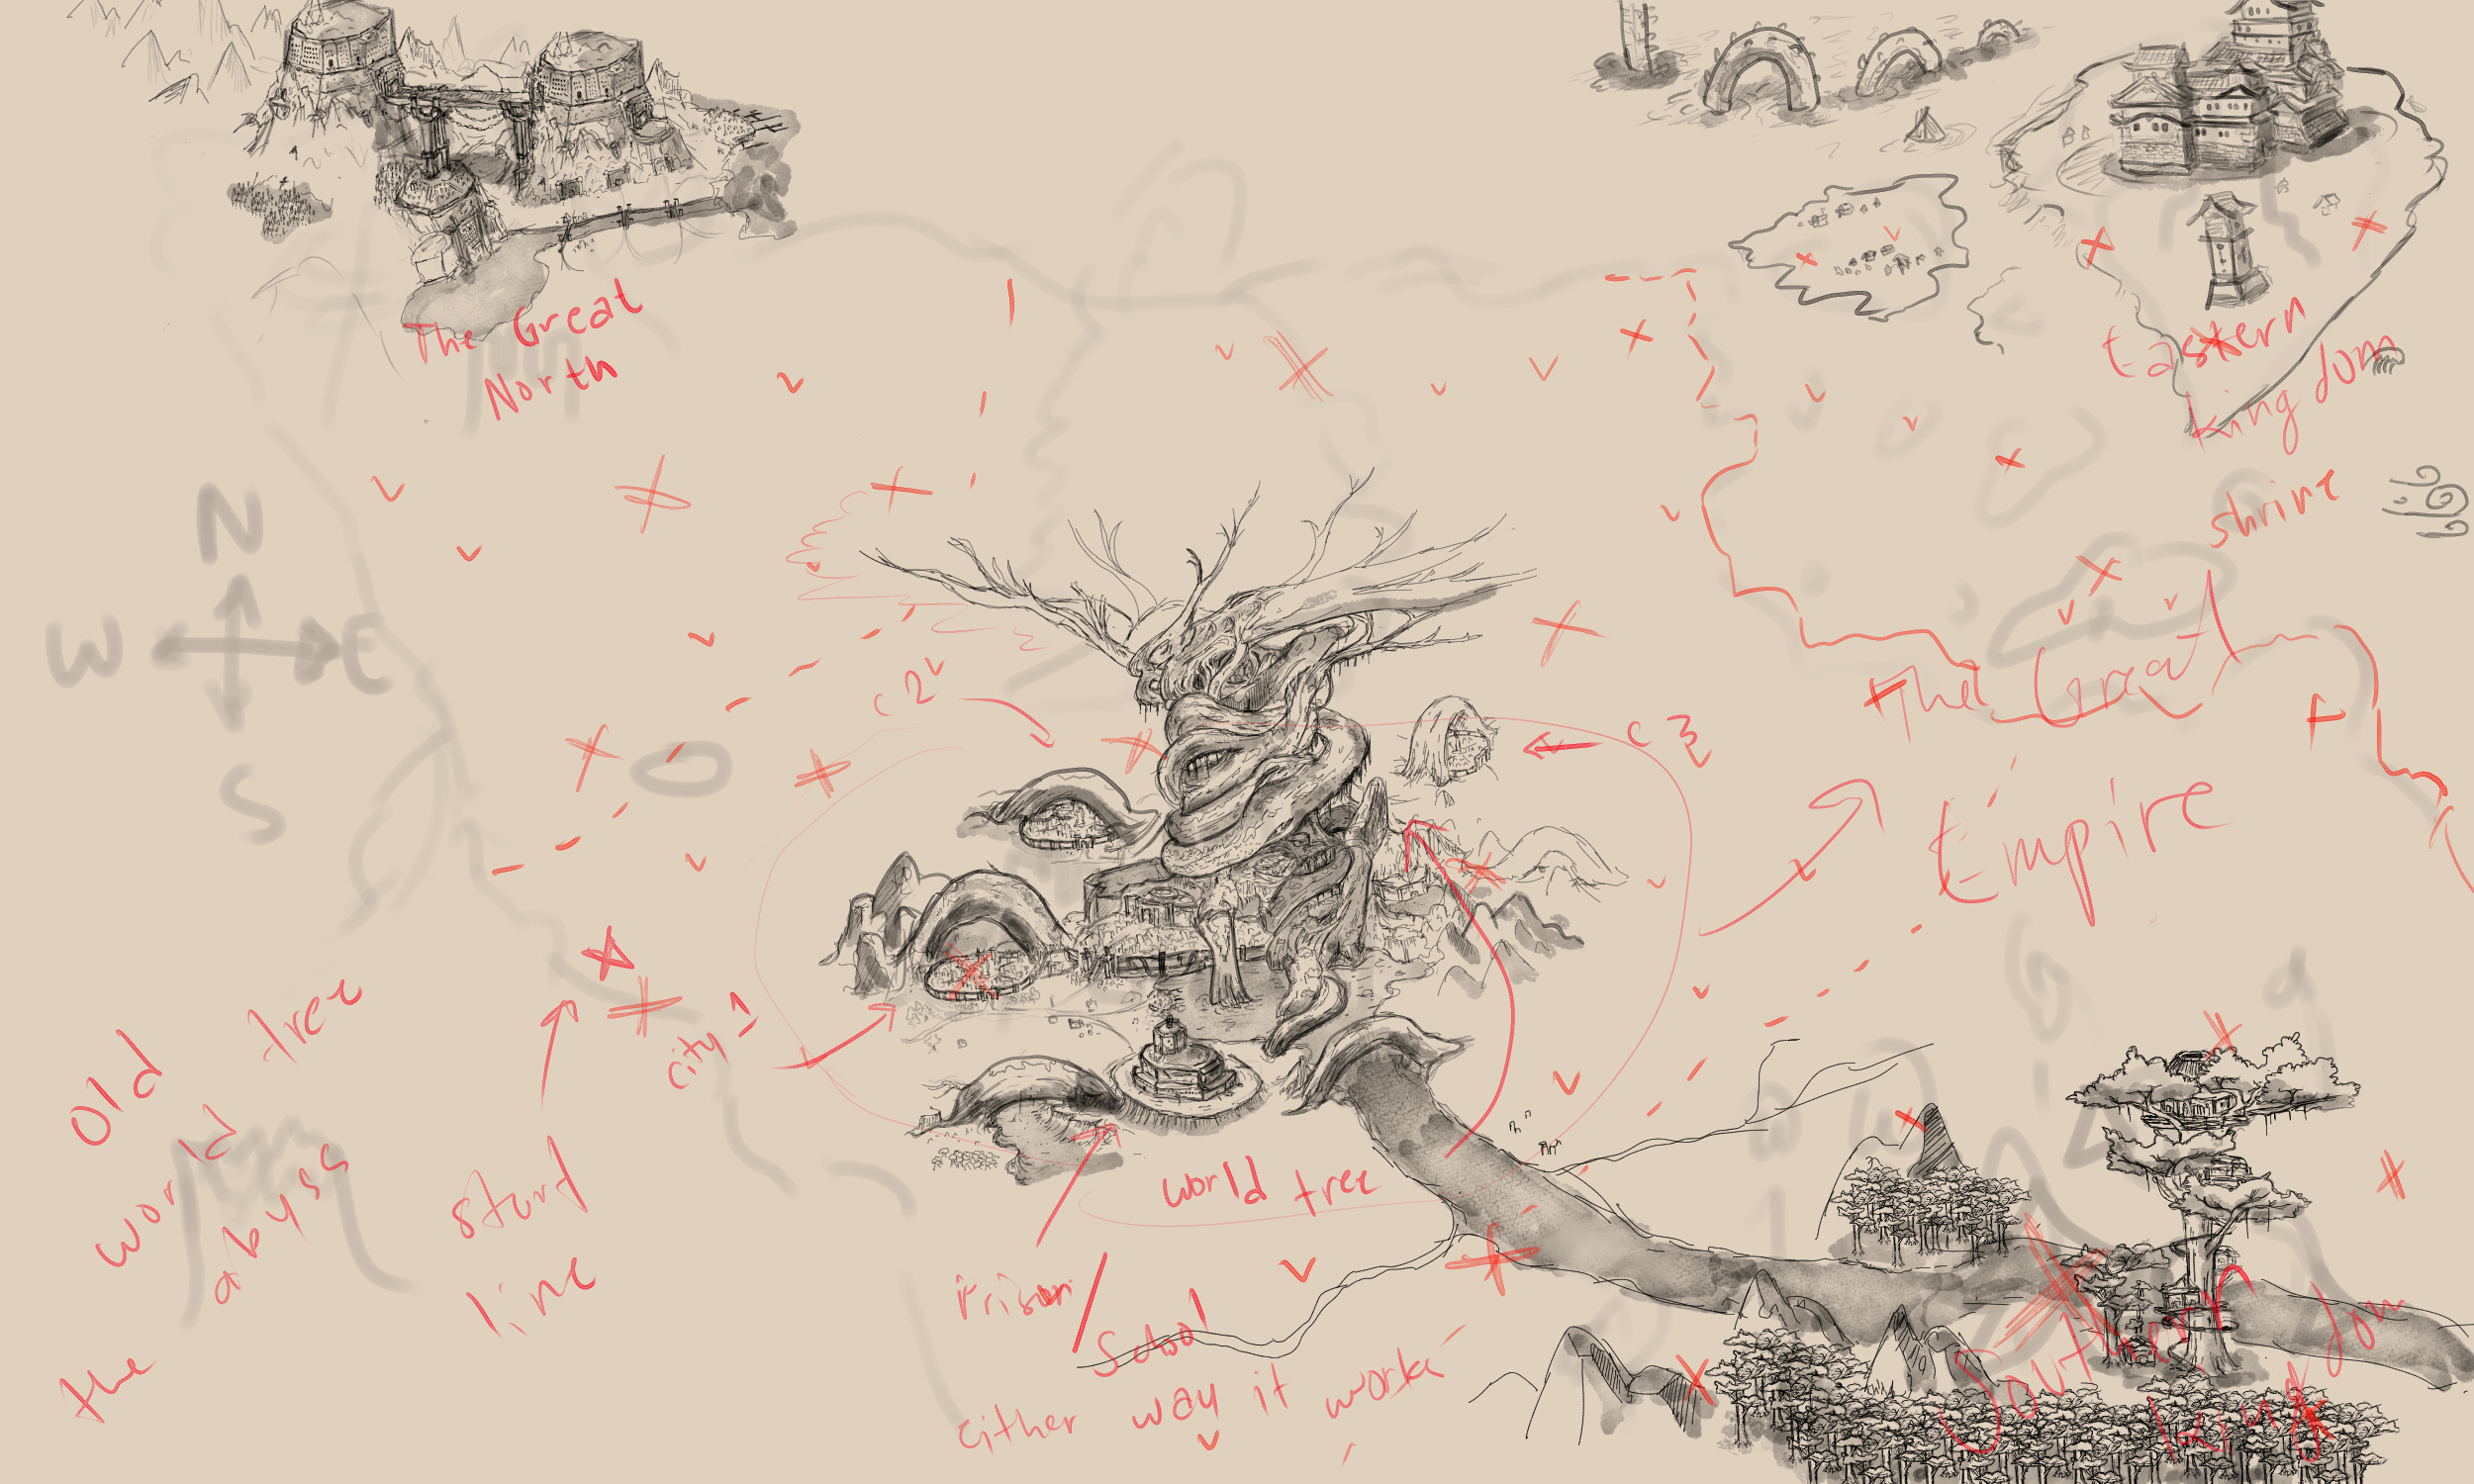 The Great
North
Eastern
kingdom
shrine
N
W
E
S
c 2
c 3
The Great
Empire
Old
world tree
the abyss
start
line
city 1
world tree
Prison/
School
either way it works
Southern
kingdom